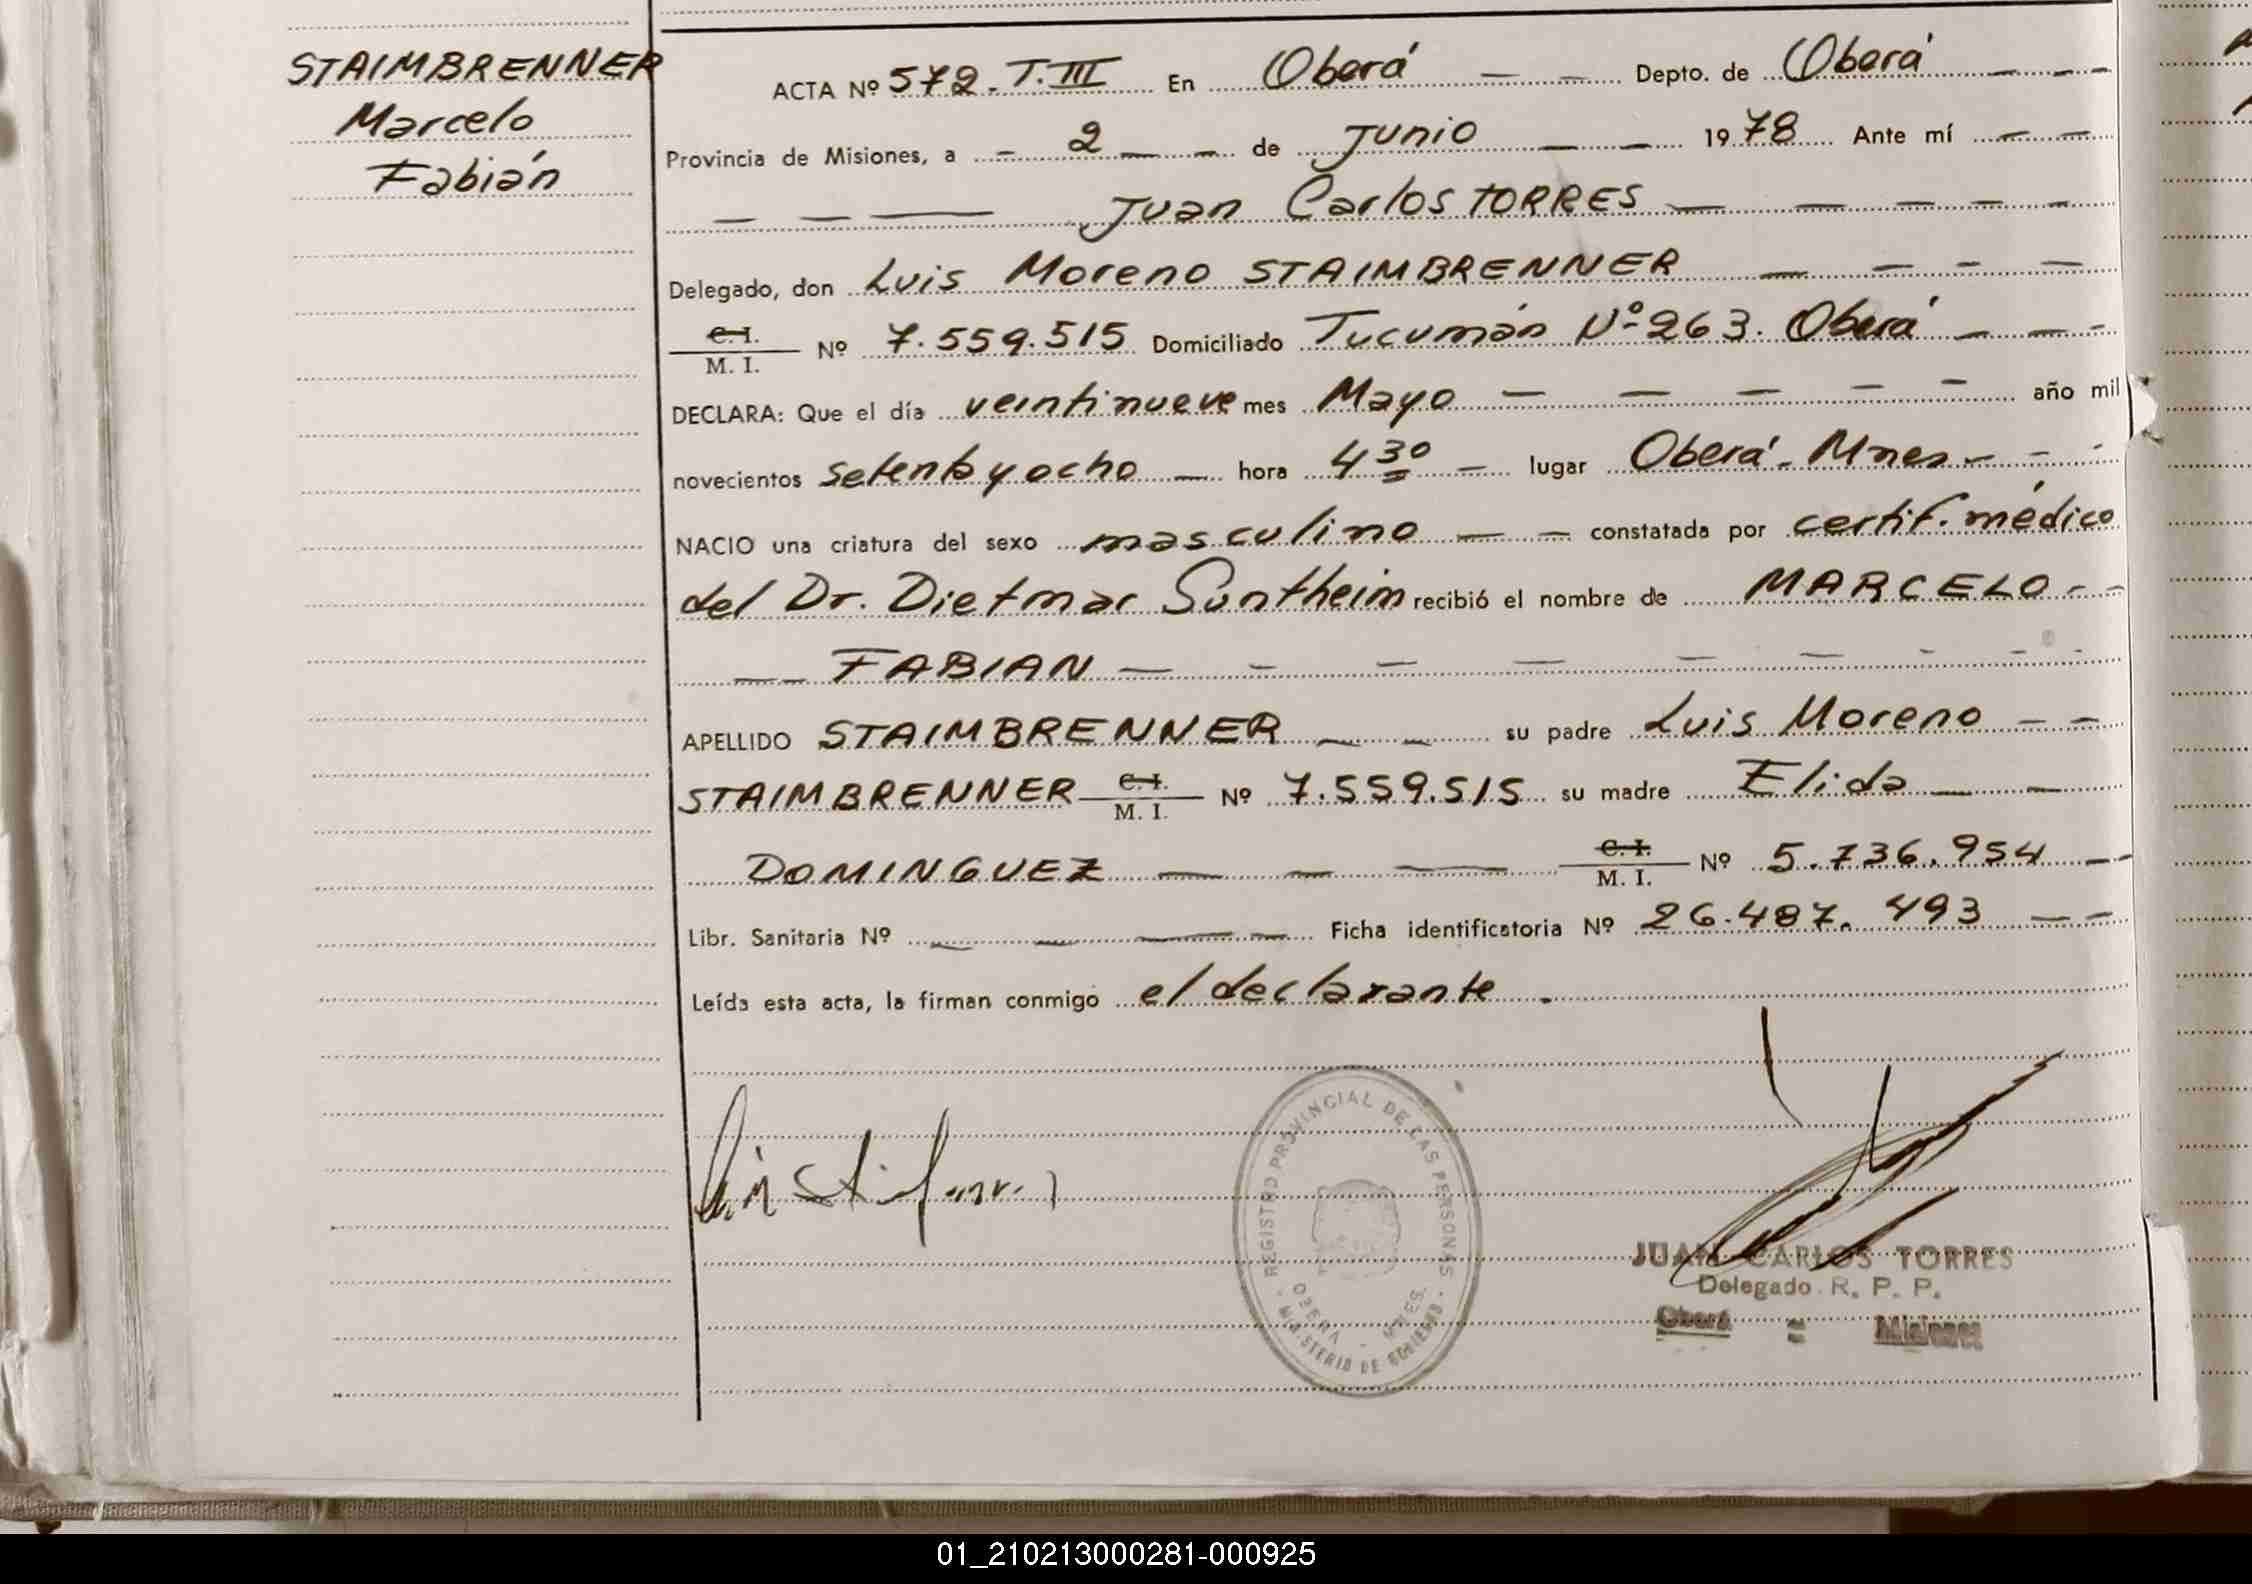 STAIMBRENNER
Marcelo
Fabián
ACTA Nº 572. T. III En Oberá — — Depto. de Oberá — — —
Provincia de Misiones, a — 2 — — de Junio — — 1978 Ante mí — —
— — — Juan Carlos TORRES — — — — —
Delegado, don Luis Moreno STAIMBRENNER — — - —
C. I.
M. I. Nº 7.559.515 Domiciliado Tucumán Nº 263. Oberá — — -
DECLARA: Que el día veintinueve mes Mayo — — — — — año mil
novecientos setenta y ocho — hora 4 30 — lugar Oberá - Mnes - - -
NACIO una criatura del sexo masculino — — constatada por certif. médico
del Dr. Dietmar Sontheim recibió el nombre de MARCELO - -
— — FABIAN — — — — — — - - -
APELLIDO STAIMBRENNER — — su padre Luis Moreno — —
STAIMBRENNER C. I.
M. I. Nº 7.559.515 su madre Elida — —
DOMINGUEZ — — — C. I.
M. I. Nº 5.736.954 — —
Libr. Sanitaria Nº — — — — Ficha identificatoria Nº 26.487.493 — —
Leída esta acta, la firman conmigo el declarante.
REGISTRO PROVINCIAL DE LAS PERSONAS
OBERA - MNES.
MINISTERIO DE GOBIERNO
JUAN CARLOS TORRES
Delegado R. P. P.
Oberá = Misiones
01_210213000281-000925